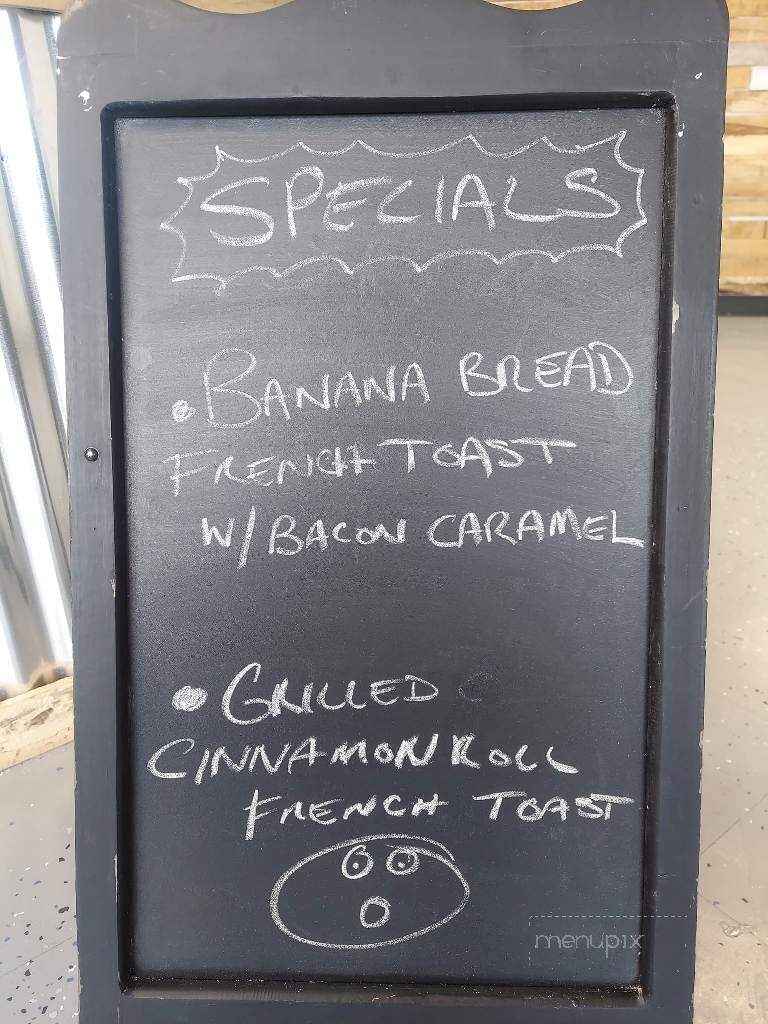 SPECIALS
• BANANA BREAD
FRENCH TOAST
W/BACON CARAMEL
• GRILLED
CINNAMON ROLL
FRENCH TOAST
menupix